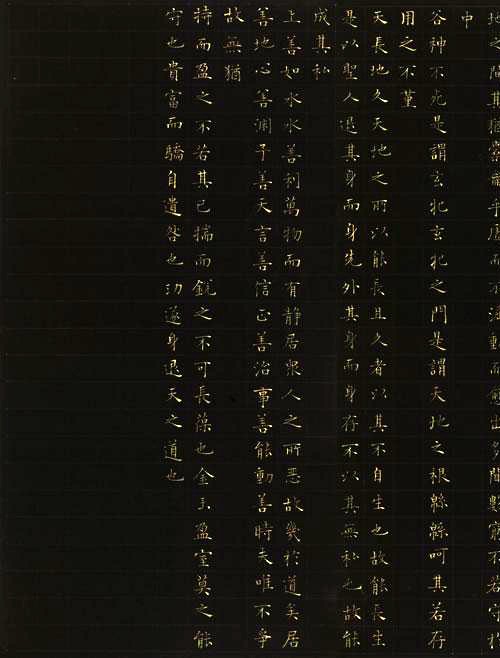 地之間其猶橐籥乎虛而不淈動而愈出多聞數窮不若守於
中
谷神不死是謂玄牝玄牝之門是謂天地之根緜緜呵其若存
用之不堇
天長地久天地之所以能長且久者以其不自生也故能長生
是以聖人退其身而身先外其身而身存不以其無私也故能
成其私
上善如水水善利萬物而有靜居眾人之所惡故幾於道矣居
善地心善淵予善天言善信正善治事善能動善時夫唯不爭
故無猶
持而盈之不若其已揣而銳之不可長葆也金玉盈室莫之能
守也貴富而驕自遺咎也功遂身退天之道也